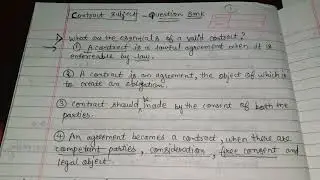 Contract Subject - Question Bank
→ What are the essentials of a valid contract?
① A contract is a lawful agreement when it is
enforceable by law.
② A contract is an agreement, the object of which is
to create an obligation.
③ Contract should be made by the consent of both the
parties.
④ An agreement becomes a contract, when there are
competent parties, consideration, free consent and
legal object.